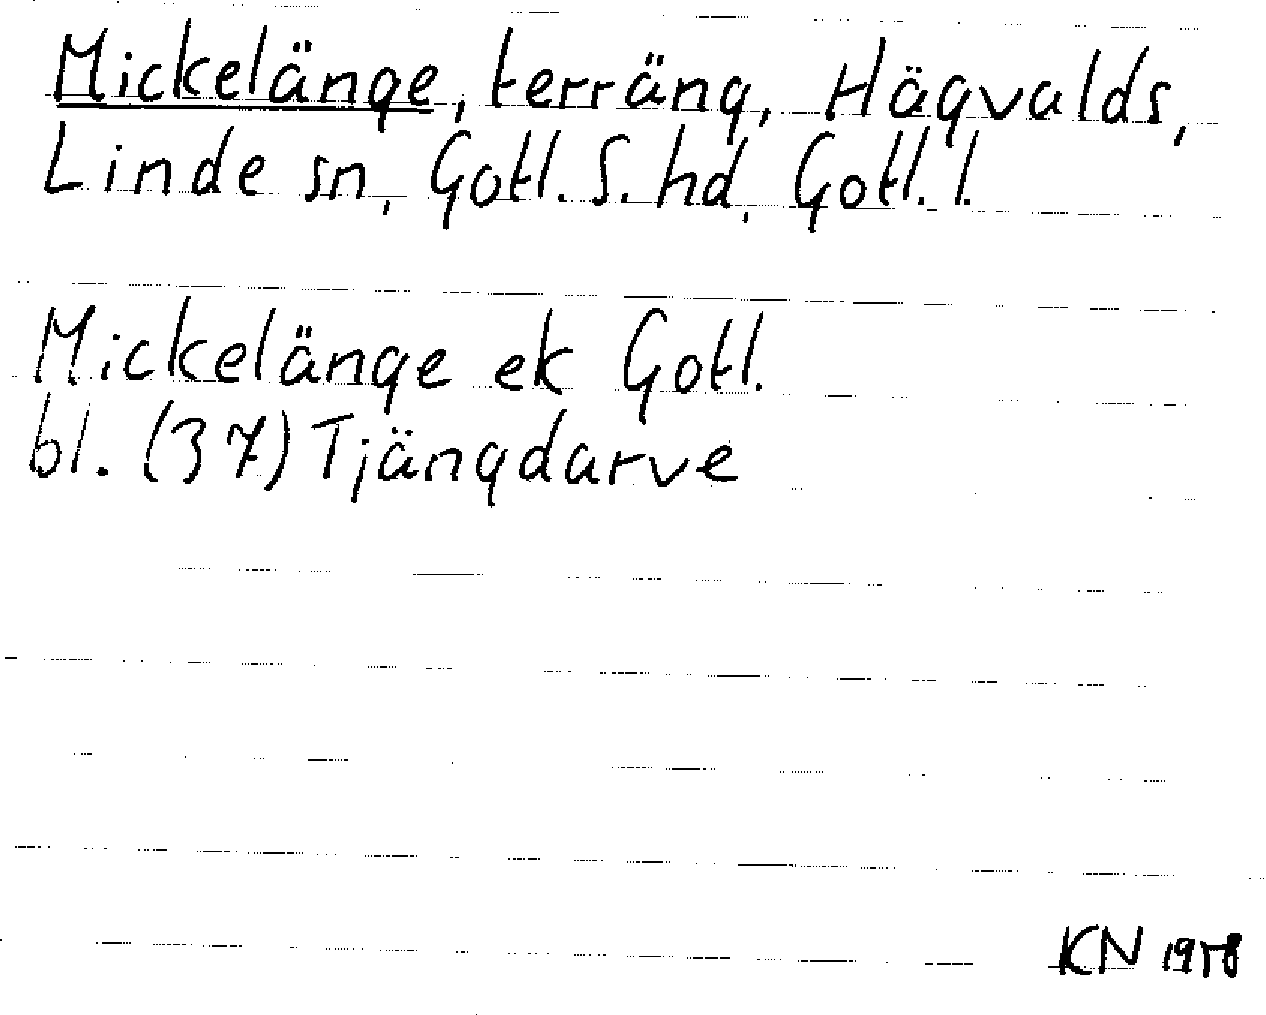 Mickelänge, terräng, Hägvalds,
Linde sn, Gotl. S. hd, Gotl. l.
Mickelänge ek Gotl.
bl. (37) Tjängdarve
KN 1958